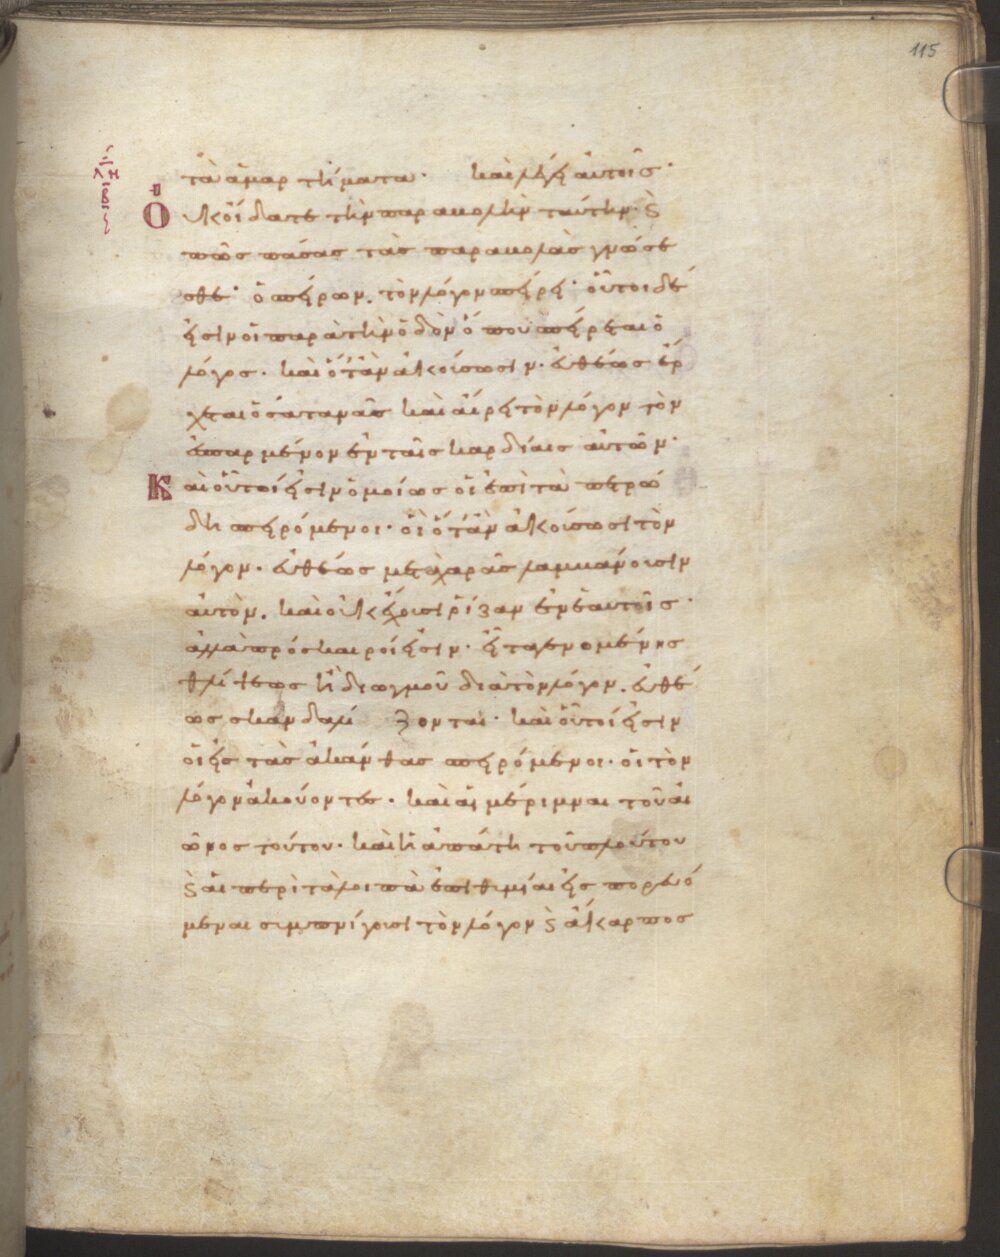 115
λη
β
τὰ ἁμαρτήματα· καὶ λέγει αὐτοῖς·
Οὐκ οἴδατε τὴν παραβολὴν ταύτην· ϗ
πῶς πάσας τὰς παραβολὰς γνώσε
σθε· ὁ σπείρων, τὸν λόγον σπείρει· οὗτοι δέ
εἰσιν οἱ παρὰ τὴν ὁδὸν ὅπου σπείρεται ὁ
λόγος· καὶ ὅταν ἀκούσωσιν· εὐθέως ἔρ
χεται ὁ σατανᾶς καὶ αἴρει τὸν λόγον τὸν
ἐσπαρμένον ἐν ταῖς καρδίαις αὐτῶν·
Καὶ οὗτοί εἰσιν ὁμοίως οἱ ἐπὶ τὰ πετρώ
δη σπειρόμενοι· οἳ ὅταν ἀκούσωσι τὸν
λόγον· εὐθέως μετὰ χαρᾶς λαμβάνουσιν
αὐτόν, καὶ οὐκ ἔχουσι ῥίζαν ἐν ἑαυτοῖς·
ἀλλὰ πρόσκαιροί εἰσιν· εἶτα γενομένης
θλίψεως ἢ διωγμοῦ διὰ τὸν λόγον, εὐθέ
ως σκανδαλίζονται· καὶ οὗτοί εἰσιν
οἱ εἰς τὰς ἀκάνθας σπειρόμενοι· οἱ τὸν
λόγον ἀκούοντες· καὶ αἱ μέριμναι τοῦ αἰ
ῶνος τούτου· καὶ ἡ ἀπάτη τοῦ πλούτου
ϗ αἱ περὶ τὰ λοιπὰ ἐπιθυμίαι εἰσπορευό
μεναι συμπνίγουσι τὸν λόγον ϗ ἄκαρπος